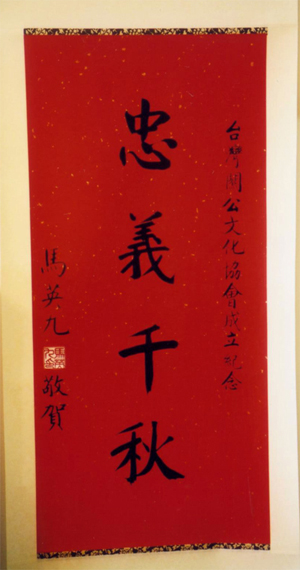 台灣關公文化協會成立紀念
忠義千秋
馬英九 敬賀